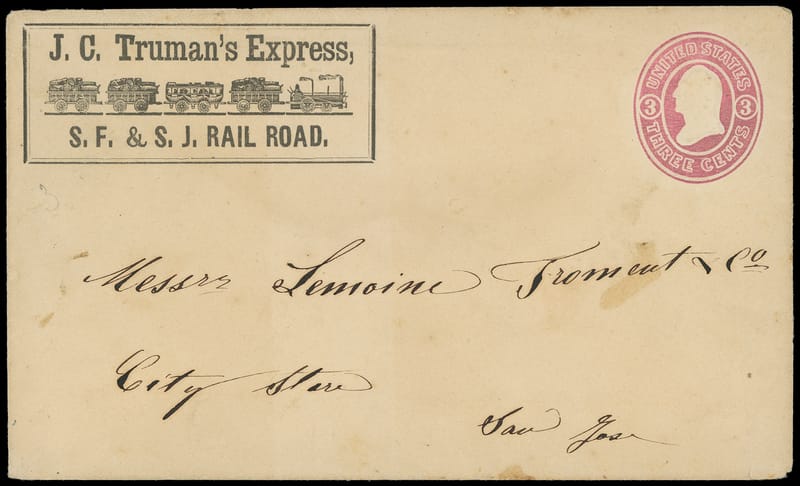 J. C. Truman's Express,
S. F. & S. J. RAIL ROAD.
UNITED STATES
3 3
THREE CENTS
Messrs Lemoine Froment & Co
City Store
San Jose
3